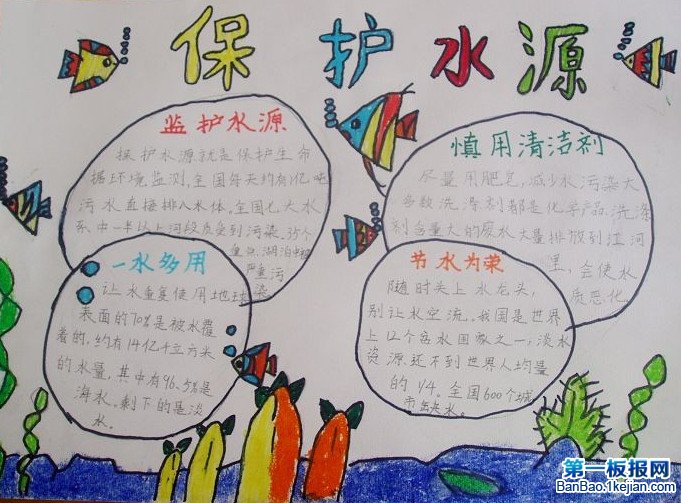 保护水源
监护水源
保护水源就是保护生命
据环境监测,全国每天约有1亿吨
污水直接排入水体。全国七大水
系中一半以上河段
受到污染。35个
重点湖泊中
严重污
染
慎用清洁剂
尽量用肥皂,减少水污染大
多数洗涤剂都是化学产品,洗涤
剂含量大的废水大量排放到江河
里,会使水
质恶化
一水多用
让水重复使用地球
表面的70%是被水覆
着的,约有14亿4立方米
的水量,其中有96.5%是
海水。剩下的是淡
水。
节水为荣
随时关上水龙头,
别让水空流。我国是世界
上12个贫水国家之一,淡水
资源还不到世界人均量
的1/4。全国600个城
市缺水。
第一板报网
BanBao.1kejian.com